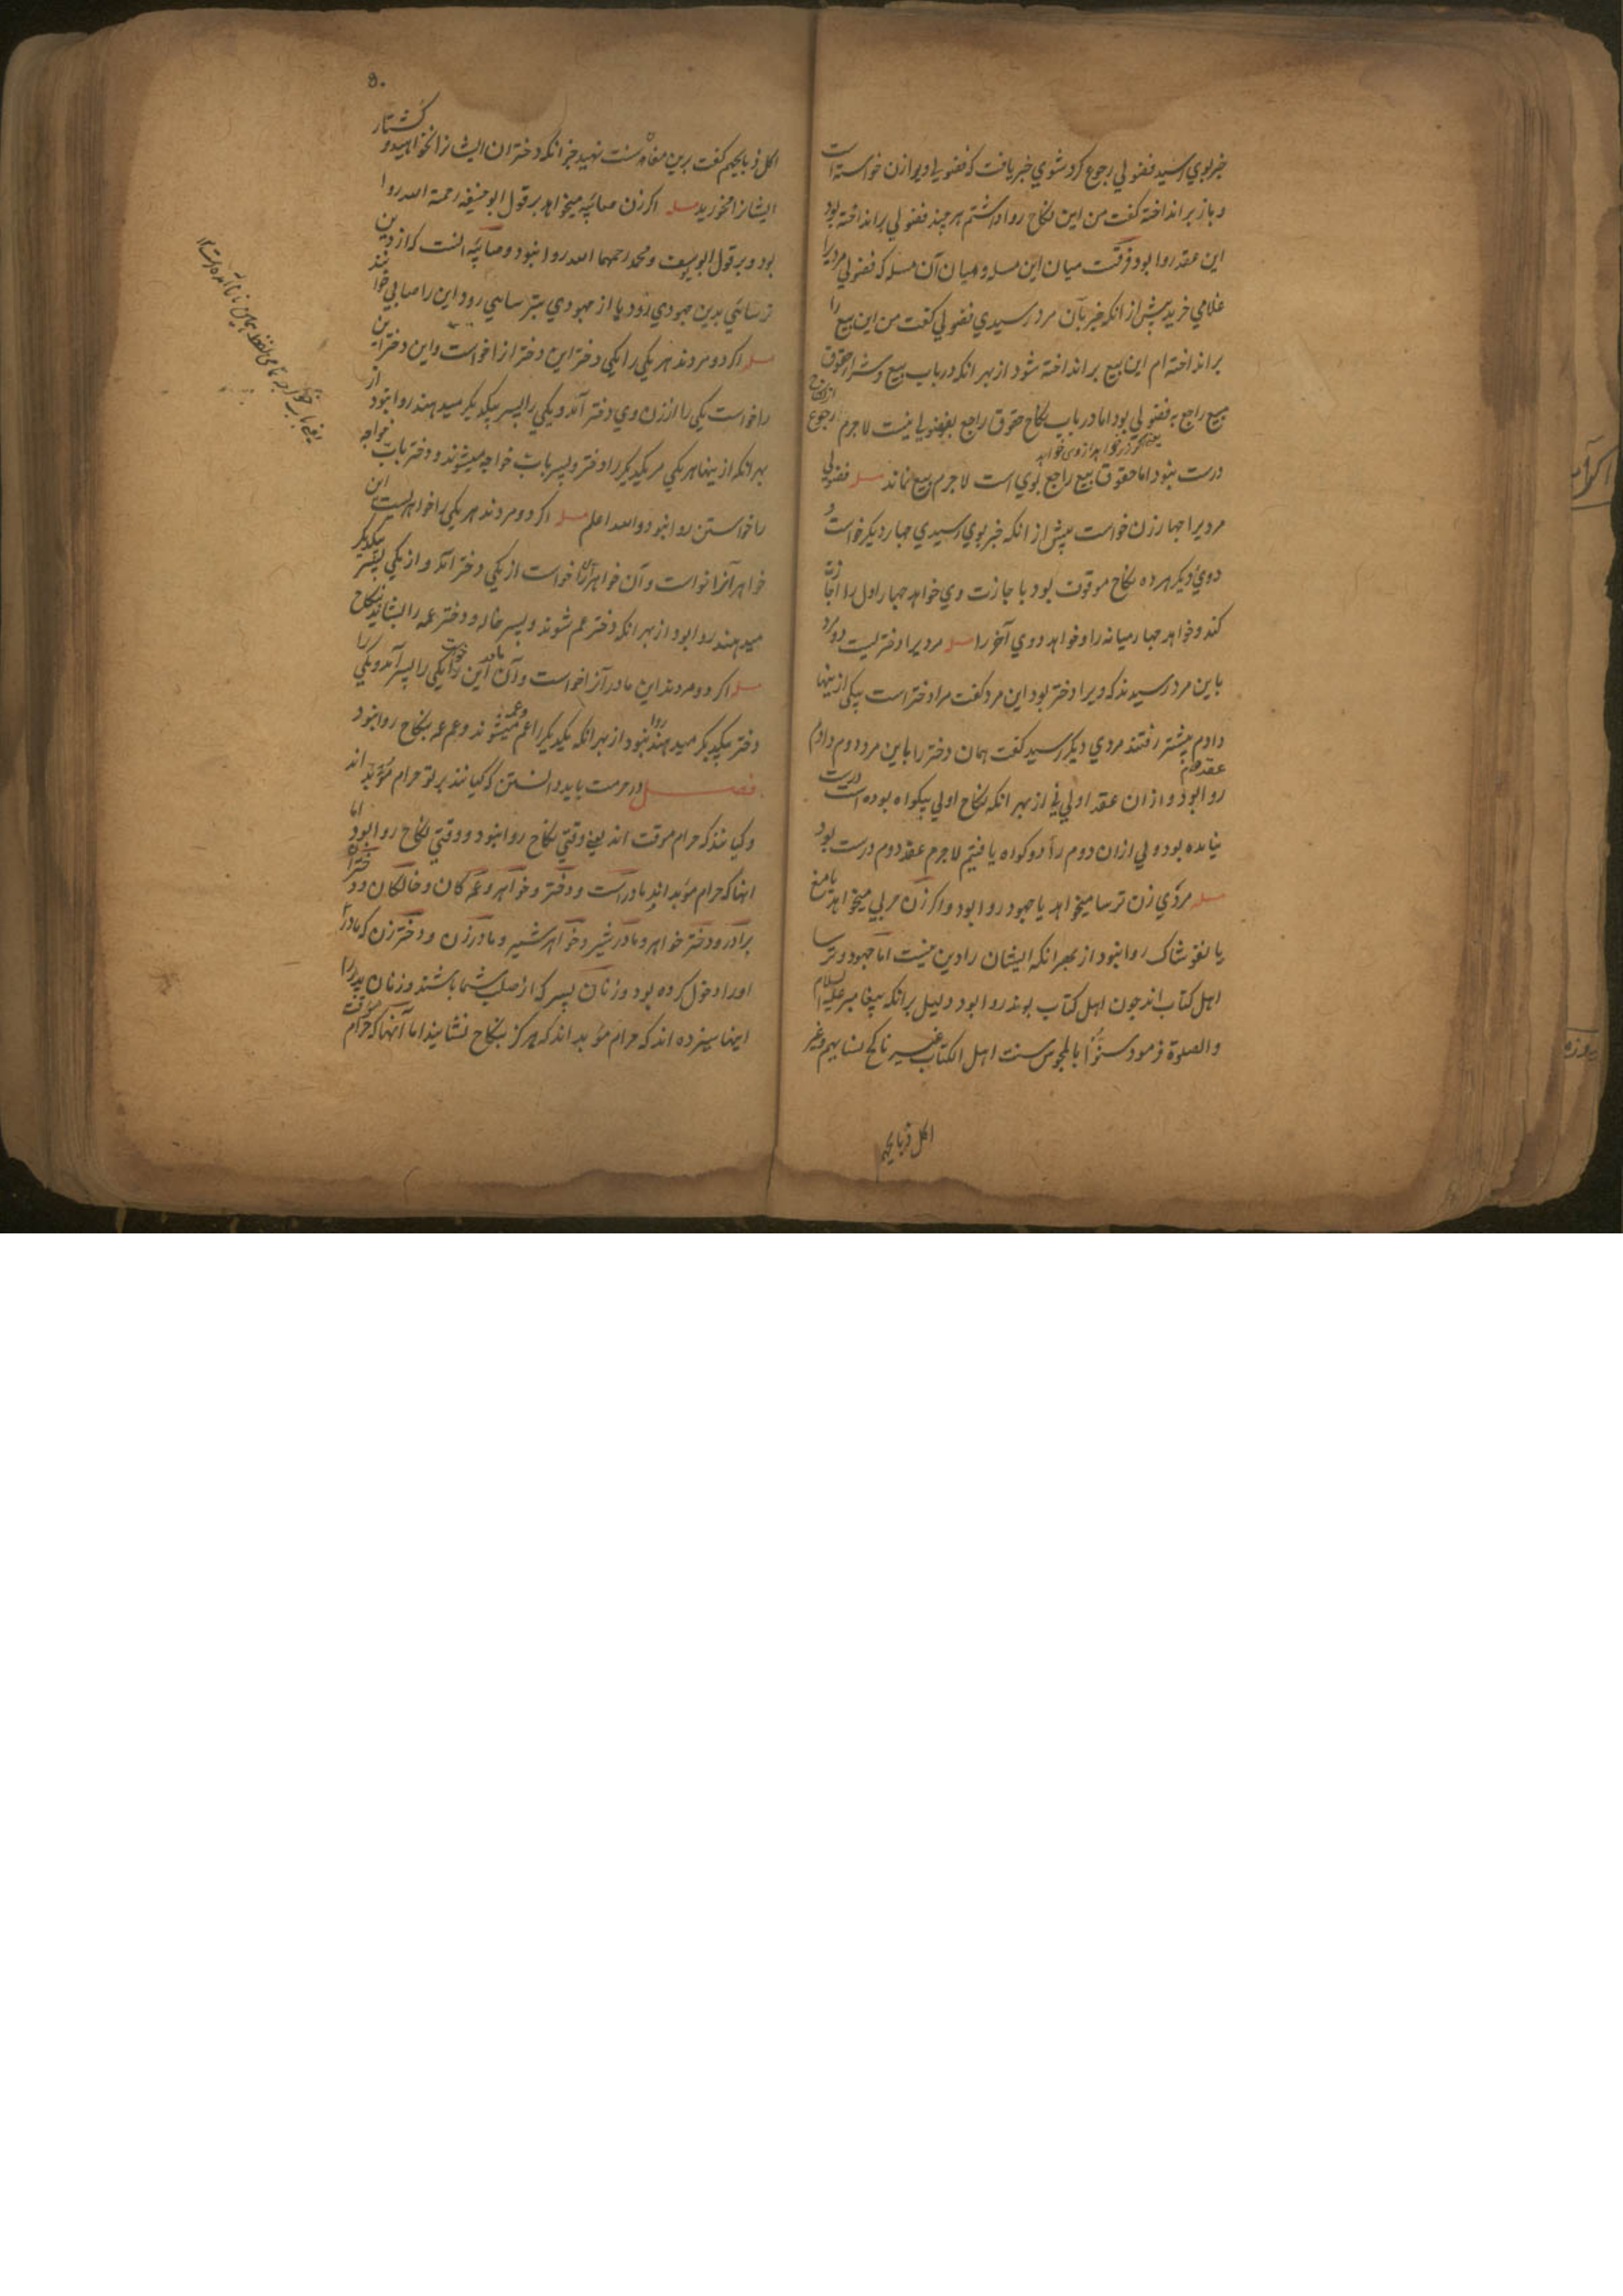 خبر بوی رسید فضولی رجوع کرد شوی خبر یافت که فضولی او را زن خواسته است
و باز بر انداخته گفت من این نکاح روا داشتم هر چند فضولی بر انداخته بود
این عقد روا بود فرقست میان این مسله و میان آن مسله که فضولی مردیرا
غلامی خرید پیش از انکه خبر بآن مرد رسیدی فضولی گفت من این بیع را
بر انداخته ام این بیع بر انداخته شود از بهر انکه در باب بیع و شرا حقوق
بیع راجع به فضولی بود اما در باب نکاح حقوق راجع بفضولی نیست لا جرم رجوع
درست نبود اما حقوق بیع راجع بوی است لا جرم بیع نماند مسله فضولی
مردیرا چهار زن خواست پیش از انکه خبر بوی رسیدی چهار دیگر خواست و
دوی دیگر هر ده نکاح موقوف بود با جازت وی خواهد چهار اول را اجازت
کند و خواهد چهار میانه را و خواهد دوی آخر را مسله مردیرا دختریست دو مرد
باین مرد رسیدند که ویرا دختر بود این مرد گفت مرا دختر است بیکی ازینها
دادم پیشتر رفتند مردی دیگر رسید گفت همان دختر را باین مرد دوم دادم
عقد دوم
روا بود و از ان عقد اولی نی از بهر انکه نکاح اولی بیکواه بوده است درست
نیامده بود ولی از ان دوم را دو کواه یافتیم لا جرم عقد دوم درست بود
مسله مردی زن ترسا میخواهد یا جهود روا بود و اکر زن حربی میخواهد یا مغ
یا لغوشاک روا نبود از بهر انکه ایشان را دین نیست اما جهود و ترسا
اهل کتاب اند چون اهل کتاب بوند روا بود دلیل بر انکه پیغامبر علیه السلام
والصلوة فرمود سنوا بالمجوس سنت اهل الکتاب غیر ناکح نسایهم و غیر
اکل ذبایحهم
اکل ذبایحهم گفت برین مغان سنت نهید جز انکه دختران ایشانرا نخواهید و
کشتار
ایشانرا نخورید مسله اکر زن صائبه میخواهد بر قول ابو حنیفه رحمة الله روا
بود و بر قول ابو یوسف و محمد رحمهما الله روا نبود و صائبه انست که از دین
ترسائی بدین جهودی رود یا از جهودی بترسایی رود این را صابی خوانند
مسله اکر دو مردند هر یکی را یکی دختر این دختر انرا خواست و این دختر این
را خواست یکی را از زن وی دختر آمد و یکی را پسر بیکدیکر میدهند روا نبود از
بهر انکه ازینها هر یکی مر یکدیکر را دختر و پسر باب خواجه میشوند و دختر باب خواجه
را خواستن روا نبود و الله اعلم مسله اکر دو مردند هر یکی را خواهریست این
خواهر آنرا خواست و آن خواهر این را خواست از یکی دختر آمد و از یکی پسر بیکدیکر
میدهند روا بود از بهر انکه دختر عم شوند و پسر خاله و دختر عمه را بشاید بنکاح
مسله اکر دو مردند این مادر آنرا خواست و آن مادر این را خواست یکی را پسر آمد و یکی را
دختر بیکدیکر میدهند روا نبود از بهر انکه یکدیکر را عم و عمه میشوند و عم عمه بنکاح روا نبود
فصل در حرمت باید دانستن که کیانند بر تو حرام مؤبد اند
و کیانند که حرام موقت اند یعنی وقتی نکاح روا نبود و وقتی نکاح روا بود اما
اینها که حرام مؤبد اند مادر است و دختر و خواهر و عمه کان و خالکان و دختران
برادر و دختر خواهر و مادر شیر و خواهر شیر و مادر زن و دختر زن که مادر
او را دخول کرده بود و زنان پسر که از صلب شما باشند و زنان پدر را
اینها سیزده اند که حرام مؤبد اند که هرکز بنکاح نشایند اما آنها که حرام موقت